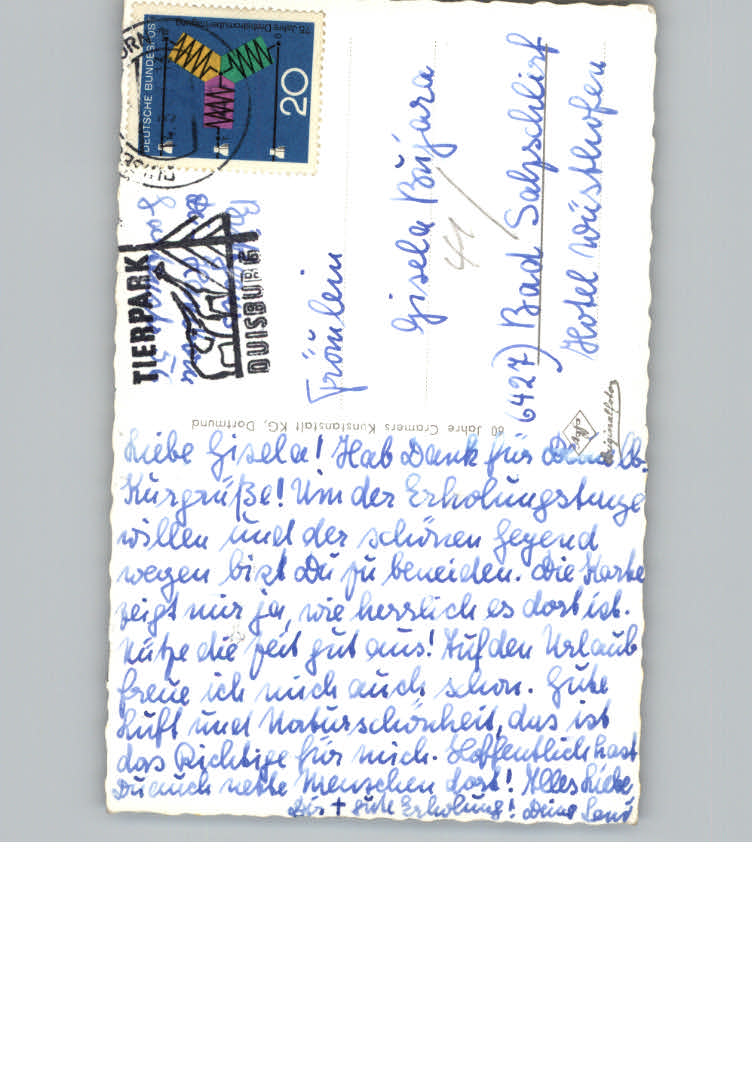 Liebe Gisela! Hab Dank für Deine lb.
Kurgrüße! Um der Erholungstage
willen und der schönen Gegend
wegen bist Du zu beneiden. Die Karte
zeigt mir ja, wie herrlich es dort ist.
Nütze die Zeit gut aus! Auf den Urlaub
freue ich mich auch schon. Gute
Luft und Naturschönheit, das ist
das Richtige für mich. Hoffentlich hast
Du auch nette Menschen dort! Alles Liebe
Dir + gute Erholung! Deine
60 Jahre Cramers Kunstanstalt KG, Dortmund
Originalfoto
Fräulein
Gisela Bujara
41
(6427) Bad Salzschlirf
Hotel Wüsthofen
DEUTSCHE BUNDESPOST
20
75 Jahre Drehstromübertragung
TIERPARK
DUISBURG